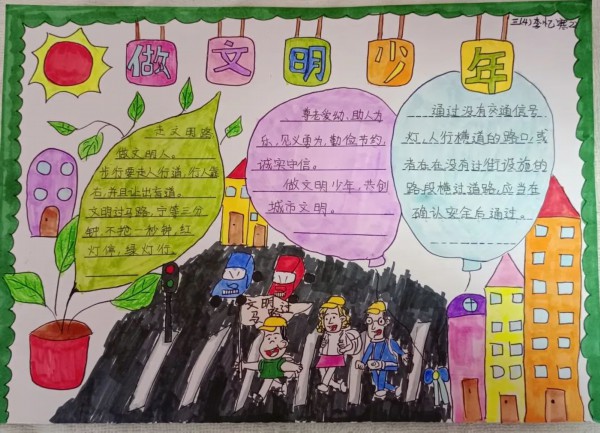 三(4)李忆
做文明少年
走文明路
做文明人。
步行要走人行道,行人靠
右,并且让出盲道。
文明过马路,宁等三分
钟,不抢一秒钟,红
灯停,绿灯行。
尊老爱幼,助人为
乐,见义勇为,勤俭节约,
诚实守信。
做文明少年,共创
城市文明。
通过没有交通信号
灯,人行横道的路口,或
者在在没有过街设施的
路段横过道路,应当在
确认安全后通过。
文明过
马路